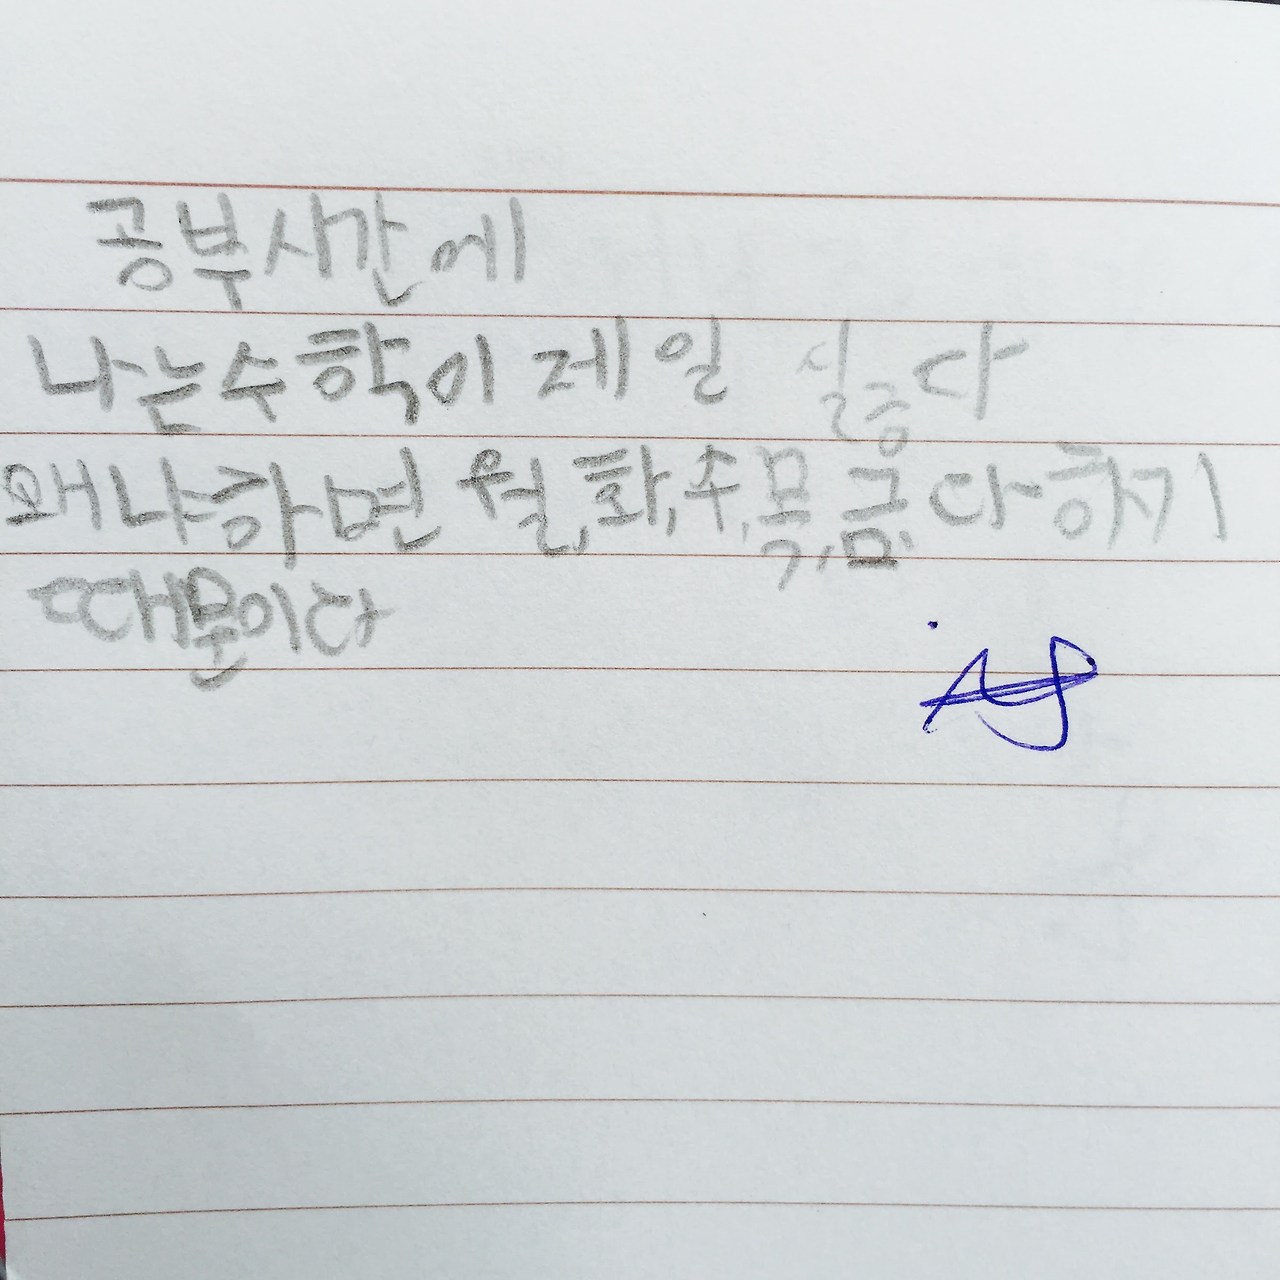 공부시간에
나는수학이 제일 싫다
왜냐하면 월,화,수,목,금,다하기
때문이다